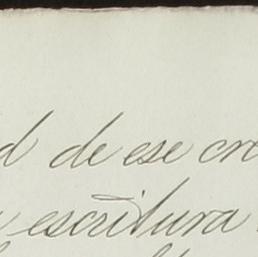 d de ese cre
escritura